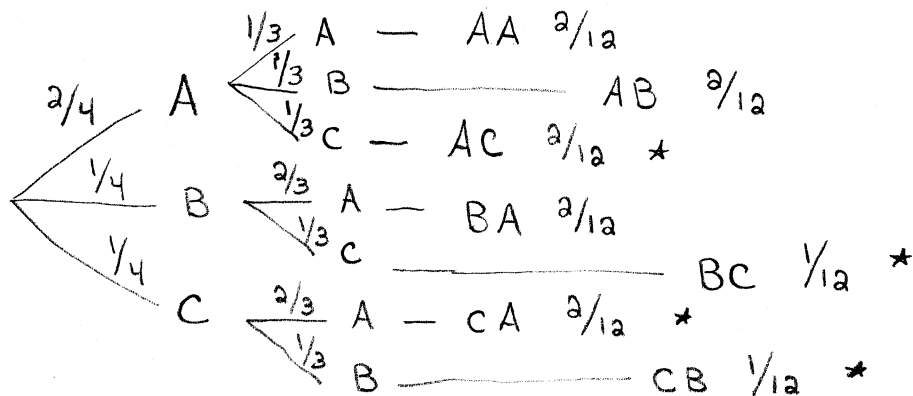 1/3 A — AA 2/12
2/4 A 1/3 B — AB 2/12
1/3 C — AC 2/12 ★
1/4 B 2/3 A — BA 2/12
1/3 C — BC 1/12 ★
1/4 C 2/3 A — CA 2/12 ★
1/3 B — CB 1/12 ★